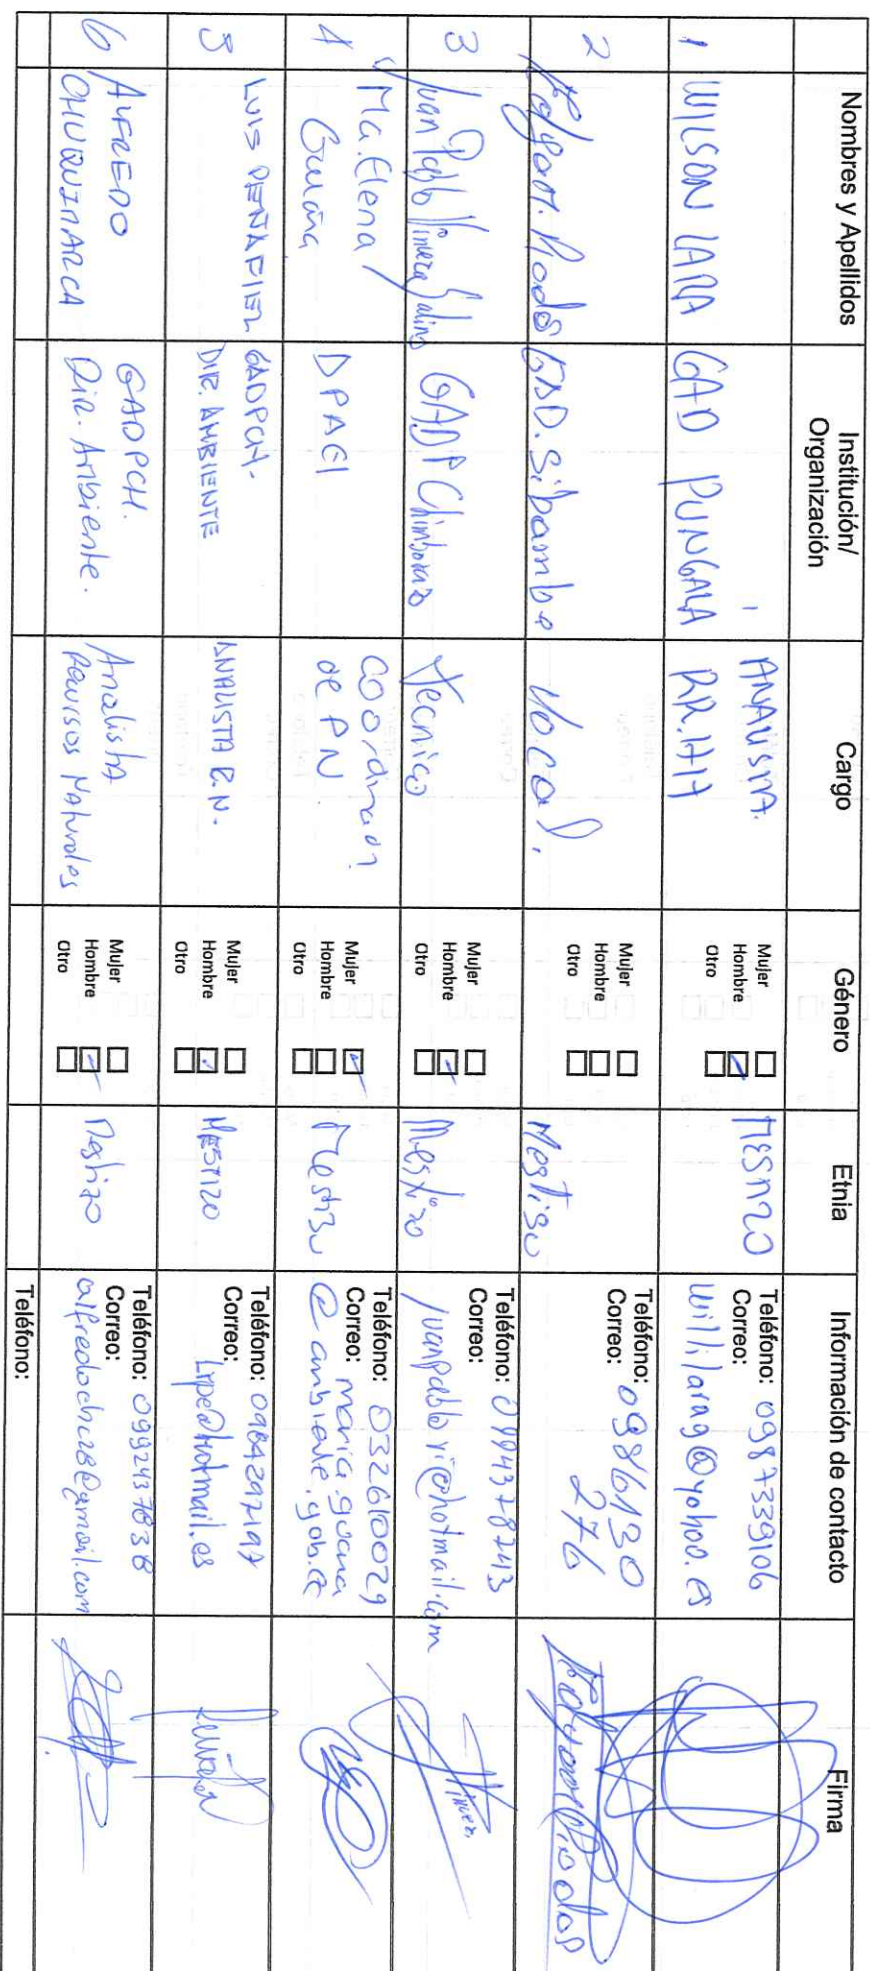 Nombres y Apellidos
Institución/
Organización
Cargo
Género
Etnia
Información de contacto
Firma
1
WILSON LARA
GAD PUNGALA
ANALISTA.
RR.HH
Mujer
Hombre
Otro
MESTIZO
Teléfono: 0987339106
Correo:
willilarag@yahoo.es
2
GAD. Sibambe
Vocal.
Mujer
Hombre
Otro
Mestiso
Teléfono: 0986130
276
Correo:
3
Juan Pablo
GADP Chimborazo
Tecnico
Mujer
Hombre
Otro
Mestizo
Teléfono: 0994378743
Correo:
juanpablovi@hotmail.com
4
Ma. Elena
DPACH
Coordinador
de PN
Mujer
Hombre
Otro
Mestizo
Teléfono: 032610029
Correo:
@ambiente.gob.ec
5
LUIS PEÑAFIEL
GADPCH.
DIR. AMBIENTE
ANALISTA R.N.
Mujer
Hombre
Otro
MESTIZO
Teléfono: 0984297197
Correo:
6
ALFREDO
CHUQUIMARCA
GADPCH.
Dir. Ambiente.
Analista
Recursos Naturales
Mujer
Hombre
Otro
Mestizo
Teléfono: 0992437838
Correo:
Teléfono: